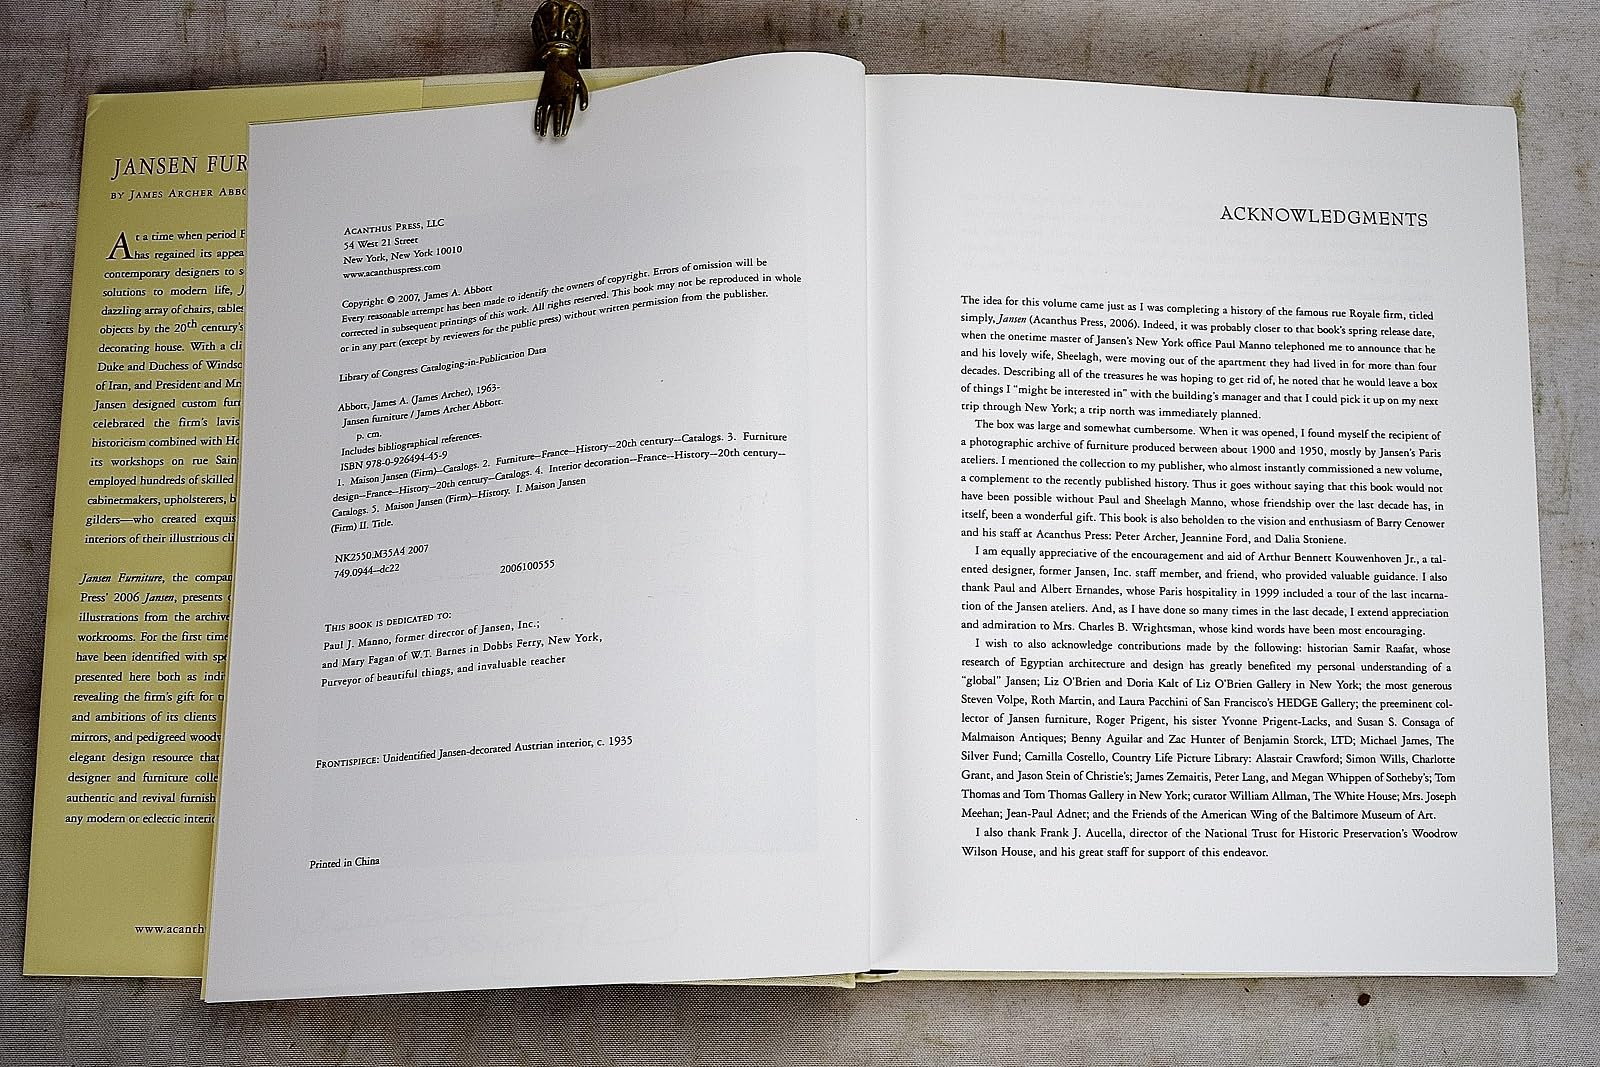 JANSEN FUR
BY JAMES ARCHER ABBO
At a time when period F
has regained its appea
contemporary designers to s
solutions to modern life, J
dazzling array of chairs, tables
objects by the 20th century's
decorating house. With a cli
Duke and Duchess of Windso
of Iran, and President and Mr
Jansen designed custom furn
celebrated the firm's lavis
historicism combined with Ho
its workshops on rue Sain
employed hundreds of skilled
cabinetmakers, upholsterers, b
gilders—who created exquis
interiors of their illustrious cli
Jansen Furniture, the compan
Press' 2006 Jansen, presents
illustrations from the archive
workrooms. For the first time
have been identified with spe
presented here both as indi
revealing the firm's gift for
and ambitions of its clients
mirrors, and pedigreed woody
elegant design resource that
designer and furniture colle
authentic and revival furnish
any modern or eclectic interio
www.acanth
ACANTHUS PRESS, LLC
54 West 21 Street
New York, New York 10010
www.acanthuspress.com
Copyright © 2007, James A. Abbott
Every reasonable attempt has been made to identify the owners of copyright. Errors of omission will be
corrected in subsequent printings of this work. All rights reserved. This book may not be reproduced in whole
or in any part (except by reviewers for the public press) without written permission from the publisher.
Library of Congress Cataloging-in-Publication Data
Abbott, James A. (James Archer), 1963-
Jansen furniture / James Archer Abbott.
p. cm.
Includes bibliographical references.
ISBN 978-0-926494-45-9
1. Maison Jansen (Firm)--Catalogs. 2. Furniture--France--History--20th century--Catalogs. 3. Furniture
design--France--History--20th century--Catalogs. 4. Interior decoration--France--History--20th century--
Catalogs. 5. Maison Jansen (Firm)--History. I. Maison Jansen
(Firm) II. Title.
NK2550.M35A4 2007
749.0944--dc22
2006100555
THIS BOOK IS DEDICATED TO:
Paul J. Manno, former director of Jansen, Inc.;
and Mary Fagan of W.T. Barnes in Dobbs Ferry, New York,
Purveyor of beautiful things, and invaluable teacher
FRONTISPIECE: Unidentified Jansen-decorated Austrian interior, c. 1935
Printed in China
ACKNOWLEDGMENTS
The idea for this volume came just as I was completing a history of the famous rue Royale firm, titled
simply, Jansen (Acanthus Press, 2006). Indeed, it was probably closer to that book's spring release date,
when the onetime master of Jansen's New York office Paul Manno telephoned me to announce that he
and his lovely wife, Sheelagh, were moving out of the apartment they had lived in for more than four
decades. Describing all of the treasures he was hoping to get rid of, he noted that he would leave a box
of things I "might be interested in" with the building's manager and that I could pick it up on my next
trip through New York; a trip north was immediately planned.
The box was large and somewhat cumbersome. When it was opened, I found myself the recipient of
a photographic archive of furniture produced between about 1900 and 1950, mostly by Jansen's Paris
ateliers. I mentioned the collection to my publisher, who almost instantly commissioned a new volume,
a complement to the recently published history. Thus it goes without saying that this book would not
have been possible without Paul and Sheelagh Manno, whose friendship over the last decade has, in
itself, been a wonderful gift. This book is also beholden to the vision and enthusiasm of Barry Cenower
and his staff at Acanthus Press: Peter Archer, Jeannine Ford, and Dalia Stoniene.
I am equally appreciative of the encouragement and aid of Arthur Bennett Kouwenhoven Jr., a tal-
ented designer, former Jansen, Inc. staff member, and friend, who provided valuable guidance. I also
thank Paul and Albert Ernandes, whose Paris hospitality in 1999 included a tour of the last incarna-
tion of the Jansen ateliers. And, as I have done so many times in the last decade, I extend appreciation
and admiration to Mrs. Charles B. Wrightsman, whose kind words have been most encouraging.
I wish to also acknowledge contributions made by the following: historian Samir Raafat, whose
research of Egyptian architecture and design has greatly benefited my personal understanding of a
"global" Jansen; Liz O'Brien and Doria Kalt of Liz O'Brien Gallery in New York; the most generous
Steven Volpe, Roth Martin, and Laura Pacchini of San Francisco's HEDGE Gallery; the preeminent col-
lector of Jansen furniture, Roger Prigent, his sister Yvonne Prigent-Lacks, and Susan S. Consaga of
Malmaison Antiques; Benny Aguilar and Zac Hunter of Benjamin Storck, LTD; Michael James, The
Silver Fund; Camilla Costello, Country Life Picture Library: Alastair Crawford; Simon Wills, Charlotte
Grant, and Jason Stein of Christie's; James Zemaitis, Peter Lang, and Megan Whippen of Sotheby's; Tom
Thomas and Tom Thomas Gallery in New York; curator William Allman, The White House; Mrs. Joseph
Meehan; Jean-Paul Adnet; and the Friends of the American Wing of the Baltimore Museum of Art.
I also thank Frank J. Aucella, director of the National Trust for Historic Preservation's Woodrow
Wilson House, and his great staff for support of this endeavor.